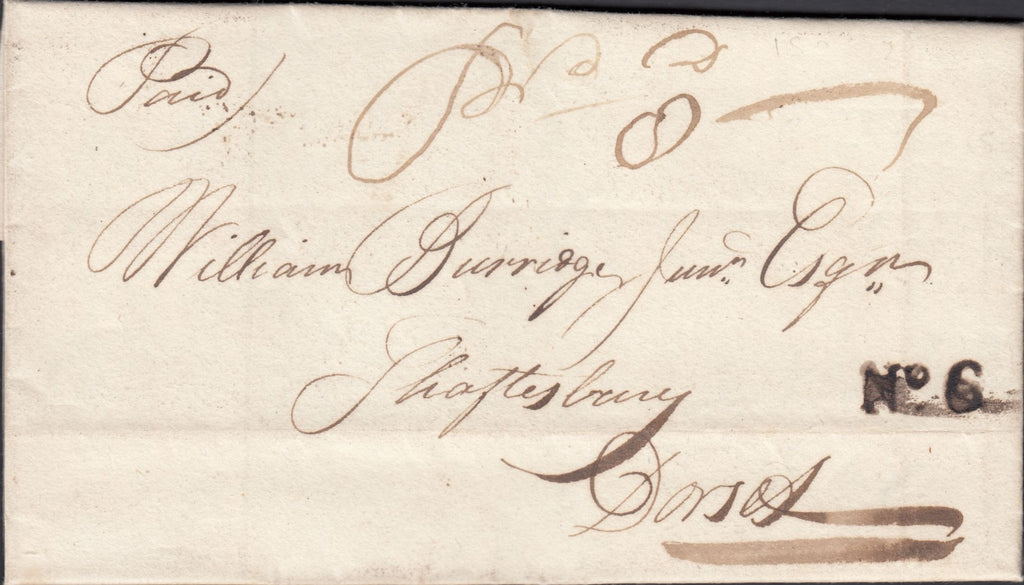 Paid
8
William Burridge Junr. Esqr.
Shaftesbury
No. 6
Dorset